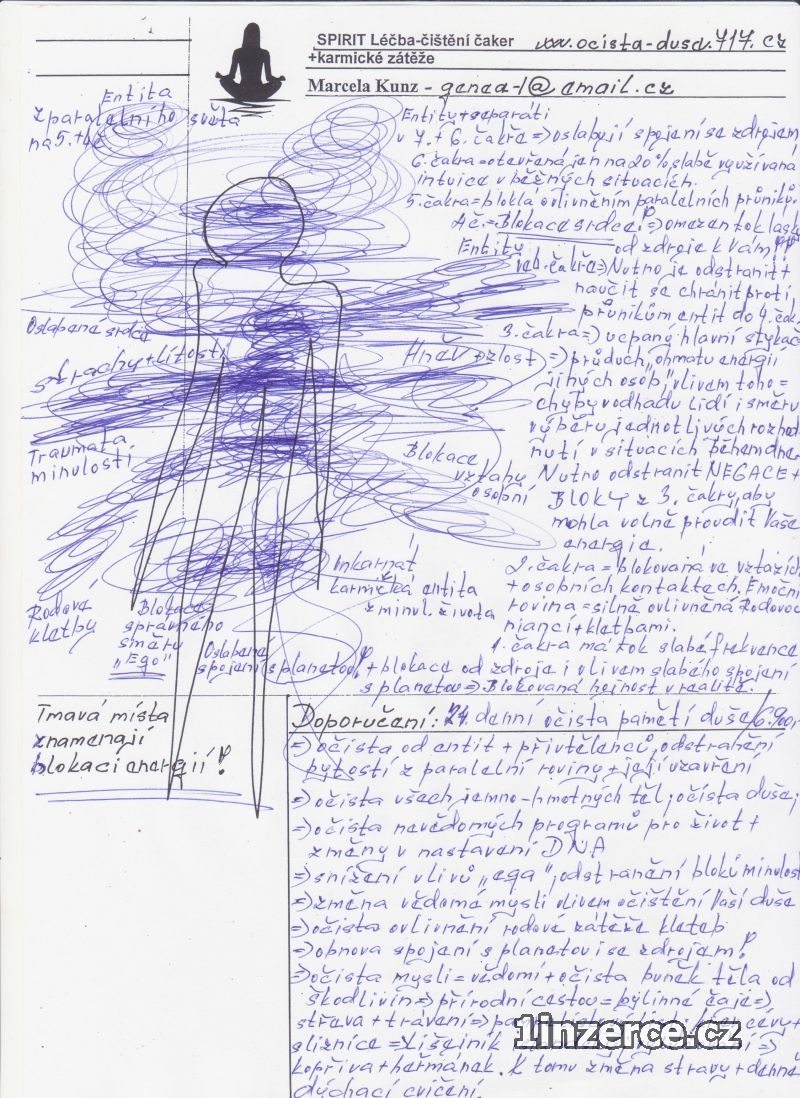 SPIRIT Léčba-čištění čaker www.ocista-duse.717.cz
+karmické zátěže
Marcela Kunz - genea-1@email.cz
Entita
z paralelního světa
na 5.+4č
Entity+separáti
v 7.+6. čakře=>oslabují spojení se zdrojem
6. čakra=otevřená jen na 20% slabě využívaná
intuice v běžných situacích.
5. čakra=blokla ovlivněním paralelních průniků.
4č.=Blokace srdce!=>omezen tok lásky
od zdroje k Vám!
Entity
ve 4. čakře=>Nutno je odstranit+
naučit se chránit proti
průnikům entit do 4. čak
Oslabené srdce
strachy+lítosti
Hněv+zlost
3. čakra=>ucpaný hlavní stykač
=>průduch, ohmatu energií
jiných osob" vlivem toho=
chyby v odhadu lidí i směru
výběru jednotlivých rozhod
nutí v situacích během dne.
Nutno odstranit NEGACE+
BLOKY z 3. čakry, aby
mohla volně proudit Vaše
energie.
Traumata
minulosti
Blokace
vztahy
osobní
2. čakra=blokovaná ve vztazích
+osobních kontaktech. Emoční
rovina=silně ovlivněná Rodovou
+kletbami.
1. čakra má tok slabé frekvence
+blokace od zdroje i vlivem slabého spojení
s planetou=>Blokovaná hojnost v realitě.
Inkarnát
karmická entita
z minul. života
Rodové
kletby
Blokace
správného
směru
"Ego"
Oslabené
spojení s planetou!
Tmavá místa
znamenají
blokaci energií!
Doporučení: 24. denní očista pamětí duše/6.900,-
=>očista od entit+přivtělenců, odstranění
bytostí z paralelní roviny+její uzavření
=>očista všech jemno-hmotných těl, očista duše;
=>očista nevědomých programů pro život+
změny v nastavení DNA
=>snížení vlivů "ega", odstranění bloků minulosti
=>změna vědomé mysli vlivem očištění Vaší duše
=>očista ovlivnění rodové zátěže kleteb
=>obnova spojení s planetou i se zdrojem!
=>očista mysli=vědomí+očista buněk těla od
škodlivin=>přírodní cestou=bylinné čaje=>
střeva+trávení=>
sliznice=>Lišejník
kopřiva+heřmánek. K tomu změna stravy+denně
dýchací cvičení.
1inzerce.cz